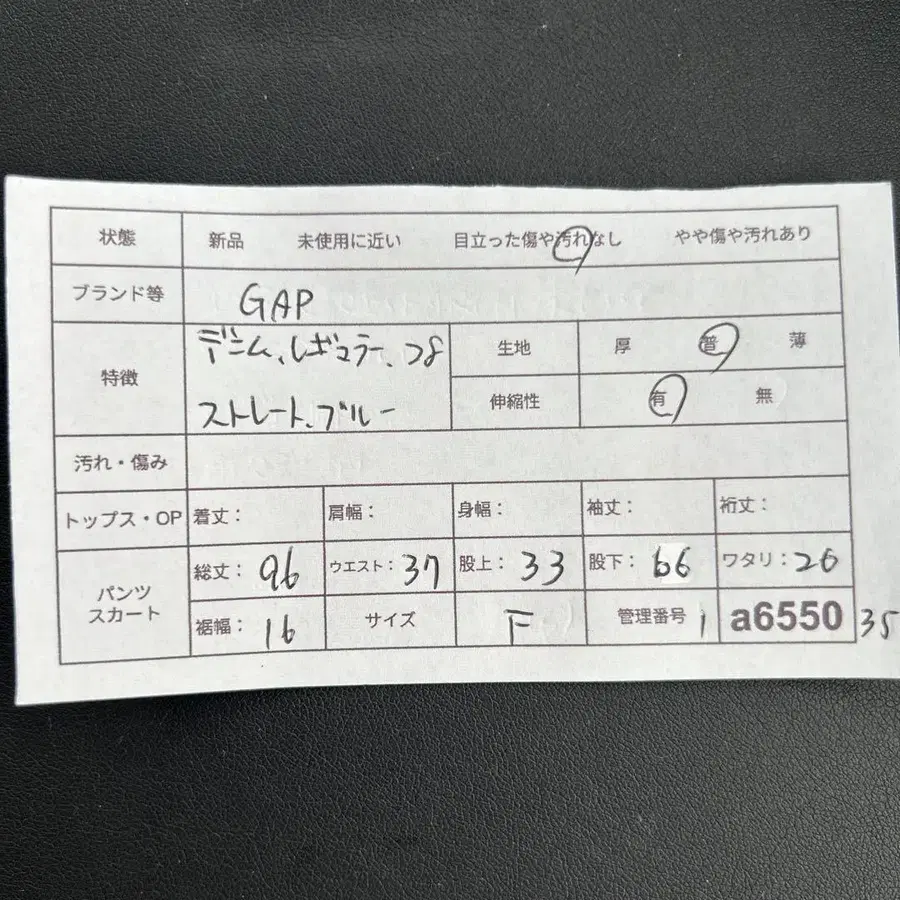 状態 新品 未使用に近い 目立った傷や汚れなし やや傷や汚れあり
ブランド等 GAP
特徴 デニム、レギュラー、28 生地 厚 普 薄
ストレート、ブルー 伸縮性 有 無
汚れ・傷み
トップス・OP 着丈: 肩幅: 身幅: 袖丈: 裄丈:
パンツ スカート 総丈: 96 ウエスト: 37 股上: 33 股下: 66 ワタリ: 26
裾幅: 16 サイズ F 管理番号 1 a6550 35